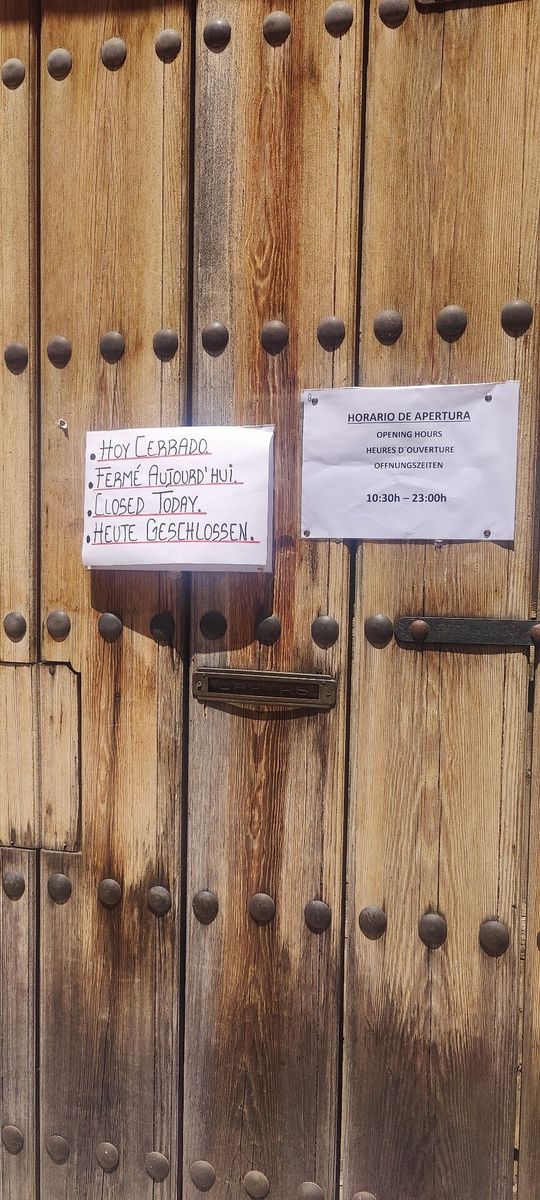 • HOY CERRADO.
• FERMÉ AUJOURD'HUI.
• CLOSED TODAY.
• HEUTE GESCHLOSSEN.
HORARIO DE APERTURA
OPENING HOURS
HEURES D´OUVERTURE
OFFNUNGSZEITEN
10:30h – 23:00h
CARTAS